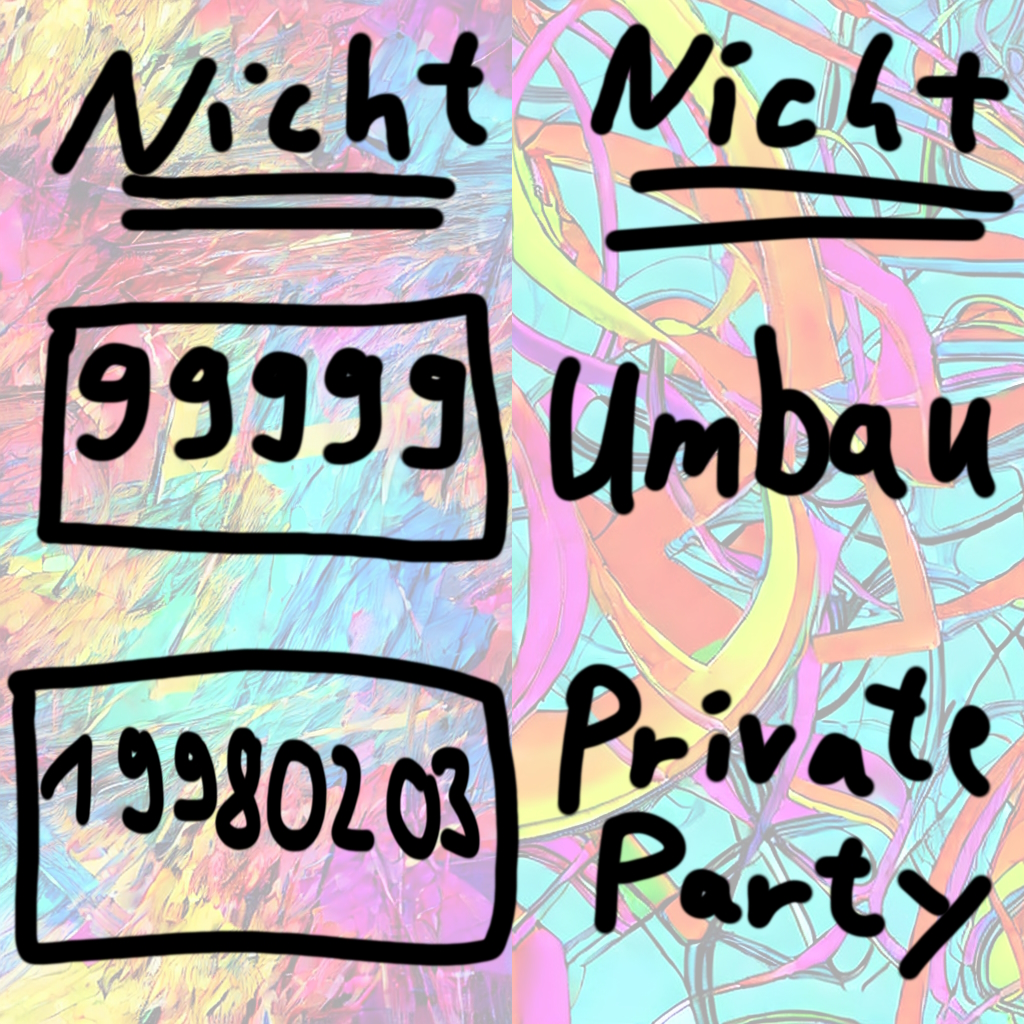 Nicht
99999
19980203
Nicht
Umbau
Private
Party